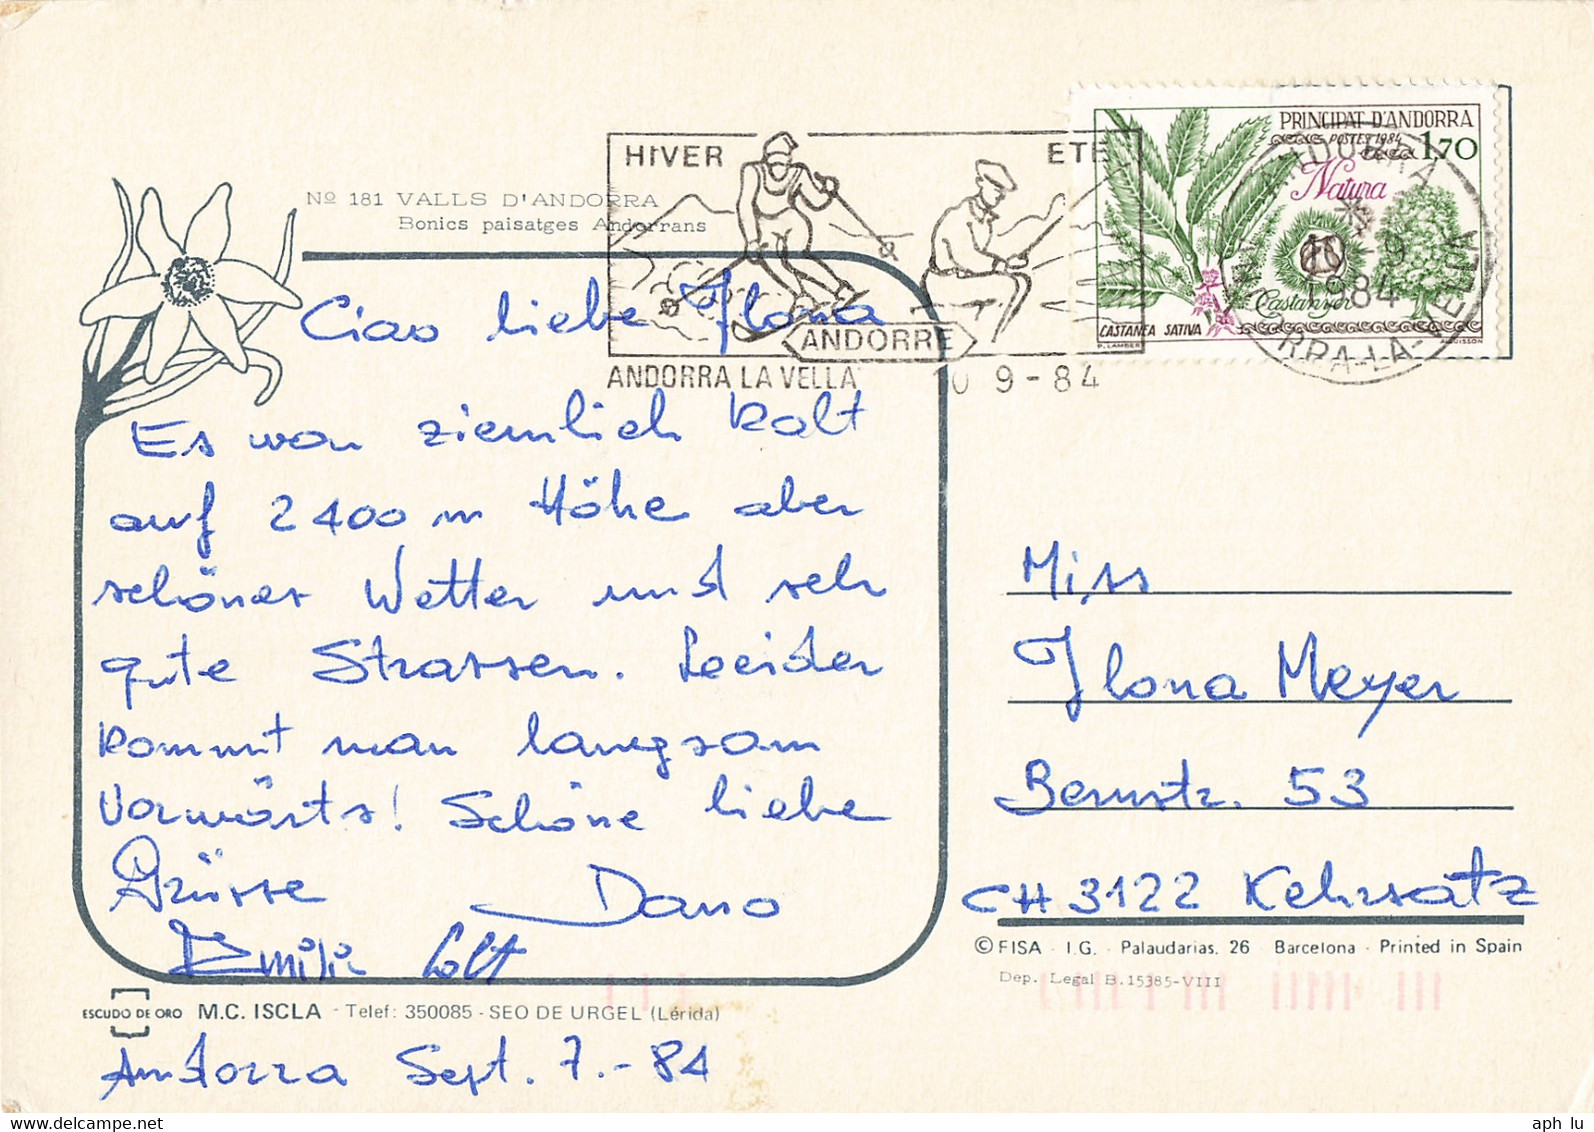 HIVER ETE
ANDORRE
ANDORRA LA VELLA 0 9-84
PRINCIPAT D'ANDORRA
POSTES 1984
1,70
Natura
Castanyer
CASTANEA SATIVA
P. LAMBERT
10 9
1984
Nº 181 VALLS D'ANDORRA
Bonics paisatges Andorrans
Ciao liebe Ilona
Es war ziemlich kalt
auf 2400 m Höhe aber
schönes Wetter und sehr
gute Strassen. Leider
kommt man langsam
vorwärts! Schöne liebe
Grüsse Dano
Miss
Ilona Meyer
Bernstr. 53
CH 3122 Kehrsatz
© FISA - I.G. - Palaudarias, 26 - Barcelona - Printed in Spain
Dep. Legal B.15385-VIII
ESCUDO DE ORO M.C. ISCLA - Telef: 350085 - SEO DE URGEL (Lérida)
Andorra Sept. 7.-84
aph lu